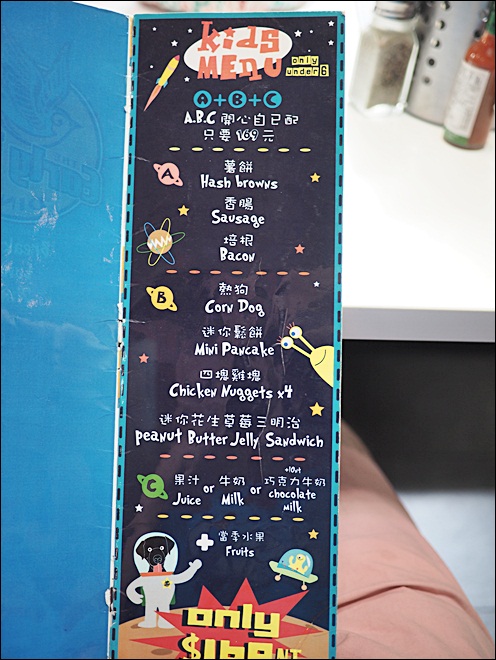 kids
MENU
only
under 6
A+B+C
A.B.C 開心自己配
只要 169 元
A
薯餅
Hash browns
香腸
Sausage
培根
Bacon
B
熱狗
Corn Dog
迷你鬆餅
Mini Pancake
四塊雞塊
Chicken Nuggets x4
迷你花生草莓三明治
peanut Butter Jelly Sandwich
C
果汁 or 牛奶 or 巧克力牛奶
Juice Milk chocolate
Milk
+
當季水果
Fruits
only
$169NT